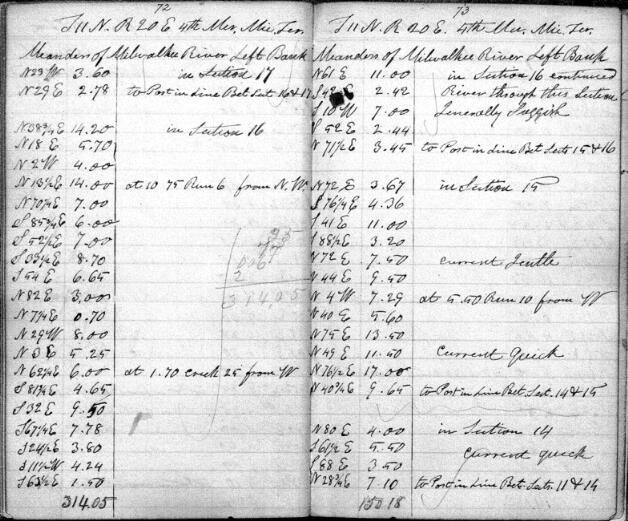 72
T 11 N. R 20 E 4th Mer. Mic. Ter.
Meanders of Milwalkee River Left Bank
N 23 W 3.60 in Section 17
N 29 E 2.78 to Post in Line Bet. Sects. 16 & 17
N 38¾ E 14.20 in Section 16
N 18 E 5.70
N 2 W 4.00
N 13½ E 14.00 at 10 75 Run 6 from N.W.
N 70¼ E 7.00
S 85¾ E 6.00
S 52½ E 7.00
S 33½ E 8.70
S 54 E 6.65
N 82 E 3.00
N 79¼ E 0.70
N 29 W 8.00
N 3 E 5.25
N 62¾ E 6.00 at 1.70 creek 25 from W
S 81¾ E 4.65
S 32 E 9.50
S 67¼ E 7.78
S 24½ E 3.80
S 11½ W 4.24
S 63½ E 1.50
314.05
31405
73
T 11 N. R 20 E. 4th Mer. Mic. Ter.
Meanders of Milwalkee River Left Bank
N 61 E 11.00 in Section 16 continued
E 2.42 River through this Section
S 10 W 7.00 Generally Suggish
S 52 E 2.44
N 71½ E 3.45 to Post in Line Bet. Sects. 15 & 16
N 72 E 3.67 in Section 15
S 76¼ E 4.36
S 41 E 11.00
S 88½ E 3.20
N 72 E 7.50 current Gentle
N 44 E 9.50
N 4 W 7.29 at 5.50 Run 10 from W
N 40 E 5.60
N 75 E 13.50
N 49 E 11.50 Current quick
N 76½ E 17.00
N 40¾ E 9.65 to Post in Line Bet. Sects. 14 & 15
N 80 E 4.00 in Section 14
S 61½ E 5.50 Current quick
S 88 E 3.50
N 28¾ E 7.10 to Post in Line Bet. Sects. 11 & 14
150 18